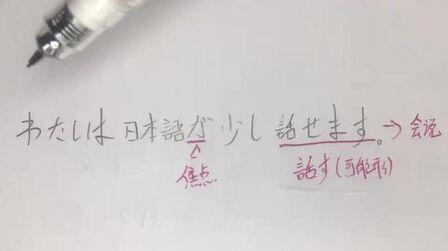 わたしは日本語が少し話せます。→会说
焦点
話す(可能形)